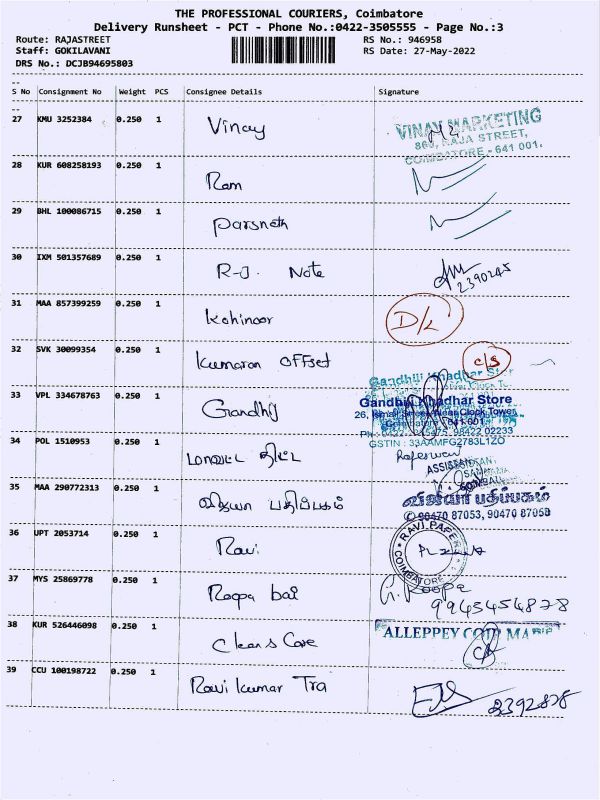 THE PROFESSIONAL COURIERS, Coimbatore
Delivery Runsheet - PCT - Phone No.:0422-3505555 - Page No.:3
Route: RAJASTREET RS No.: 946958
Staff: GOKILAVANI RS Date: 27-May-2022
DRS No.: DCJB94695803
S No Consignment No Weight PCS Consignee Details Signature
27 KMU 3252384 0.250 1 Vinay
VINAY MARKETING
860, RAJA STREET,
COIMBATORE - 641 001.
28 KUR 608258193 0.250 1 Ram
29 BHL 100086715 0.250 1 Parsneth
30 IXM 501357689 0.250 1 R-J. Note
2390245
31 MAA 857399259 0.250 1 Kohinoor D/L
32 SVK 30099354 0.250 1 Kumaran Offset c/s
33 VPL 334678763 0.250 1 Gandhij
Gandhiji Khadhar Store
26, Near Clock Tower
Coimbatore 641 001
98422 02233
GSTIN : 33AAMFG2783L1ZO
34 POL 1510953 0.250 1
Rajeswari
35 MAA 290772313 0.250 1 விஜயா பதிப்பகம்
விஜயா பதிப்பகம்
90470 87053, 90470 87058
36 UPT 2053714 0.250 1 Ravi
RAVI PAPER
COIMBATORE
37 MYS 25869778 0.250 1 Roopa bai
G. Roopa
9945454878
38 KUR 526446098 0.250 1 Clean & Care
ALLEPPEY COIR
39 CCU 100198722 0.250 1 Ravi Kumar Tra
2392878